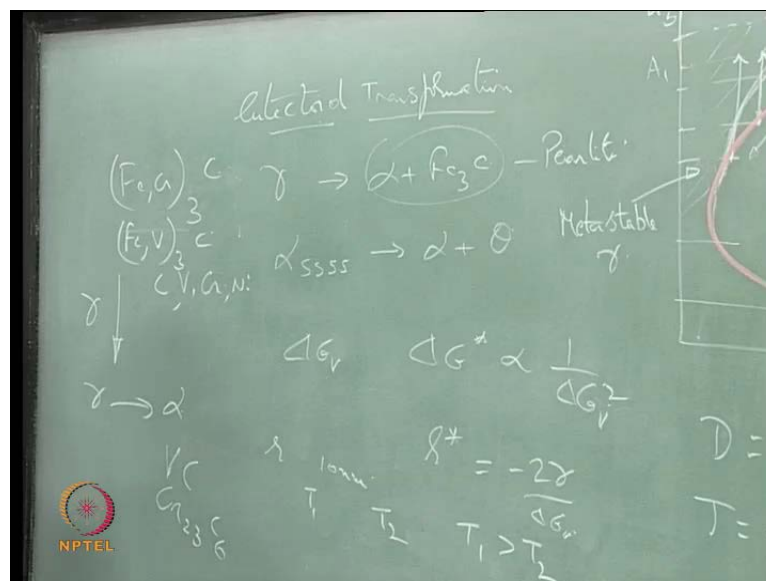 Eutectoid Transformation
(Fe,Cr)₃C γ → α + Fe₃C - Pearlite
(Fe,V)₃C αssss → α + θ
C, V, Cr, Ni
γ
Metastable γ
A₁
ΔGᵥ ΔG* ∝ 1/ΔGᵥ²
γ → α
VC
Cr₂₃C₆
r* = -2γ/ΔGᵥ
T₁ T₂ T₁ > T₂
D =
J =
NPTEL